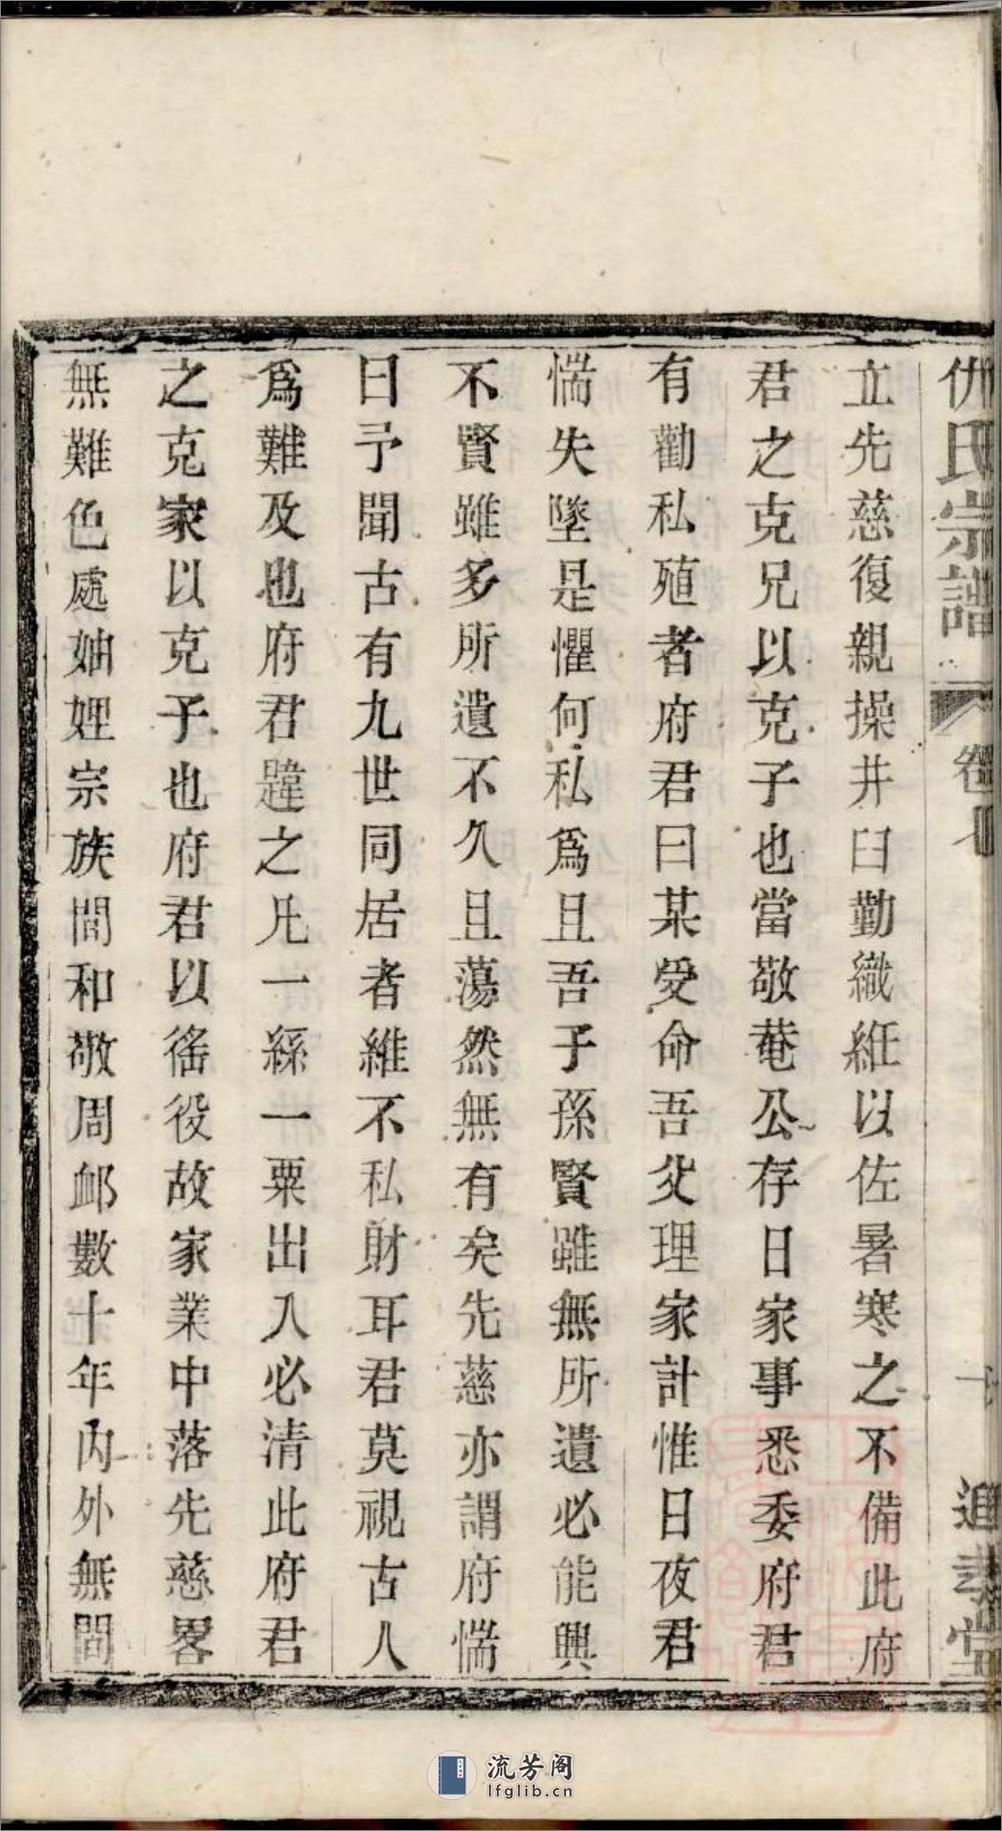 仇氏宗譜
卷
進孝堂
立先慈復親操井臼勤織絍以佐暑寒之不備此府
君之克兄以克子也當敬菴公存日家事悉委府君
有勸私殖者府君曰某受命吾父理家計惟日夜君
惴失墜是懼何私爲且吾子孫賢雖無所遺必能興
不賢雖多所遺不久且蕩然無有矣先慈亦謂府惴
曰予聞古有九世同居者維不私財耳君莫視古人
爲難及也府君韙之凡一絲一粟出入必清此府君
之克家以克子也府君以徭役故家業中落先慈畧
無難色處妯娌宗族間和敬周卹數十年內外無間
流芳阁
lfglib.cn